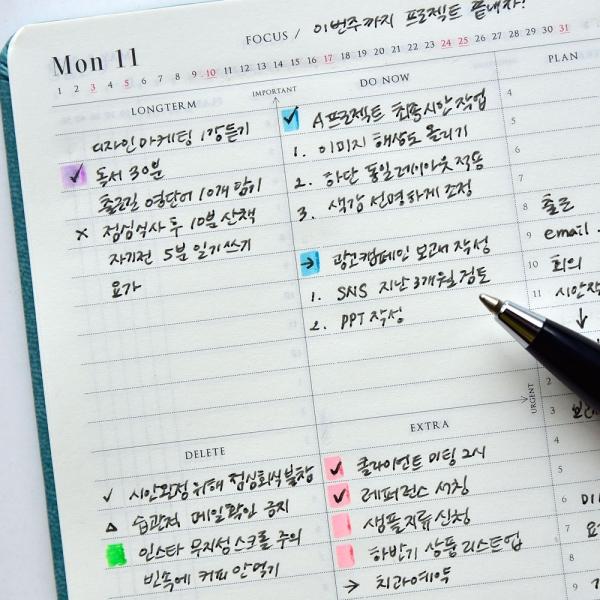 FOCUS / 이번주까지 프로젝트 끝내자!
Mon 11
1 2 3 4 5 6 7 8 9 10 11 12 13 14 15 16 17 18 19 20 21 22 23 24 25 26 27 28 29 30 31
LONGTERM
디자인 마케팅 1강 듣기
✓ 독서 30분
출근길 영단어 10개 암기
× 점심식사 후 10분 산책
자기전 5분 일기쓰기
요가
IMPORTANT
DO NOW
✓ A프로젝트 최종시안 작업
1. 이미지 해상도 올리기
2. 하단 통일 레이아웃 적용
3. 색감 선명하게 조정
→ 광고캠페인 보고서 작성
1. SNS 지난 3개월 검토
2. PPT 작성
URGENT
PLAN
4
5
6
7
8 출근
9 email
10 회의
11 시안작
↓
2
3
4
5
6
7
8
9
DELETE
✓ 시안확정 위해 점심회식 불참
△ 습관적 메일확인 금지
인스타 무지성 스크롤 주의
빈속에 커피 안먹기
EXTRA
✓ 클라이언트 미팅 2시
✓ 레퍼런스 서칭
샘플지류 신청
하반기 상품 리스트업
→ 치과예약